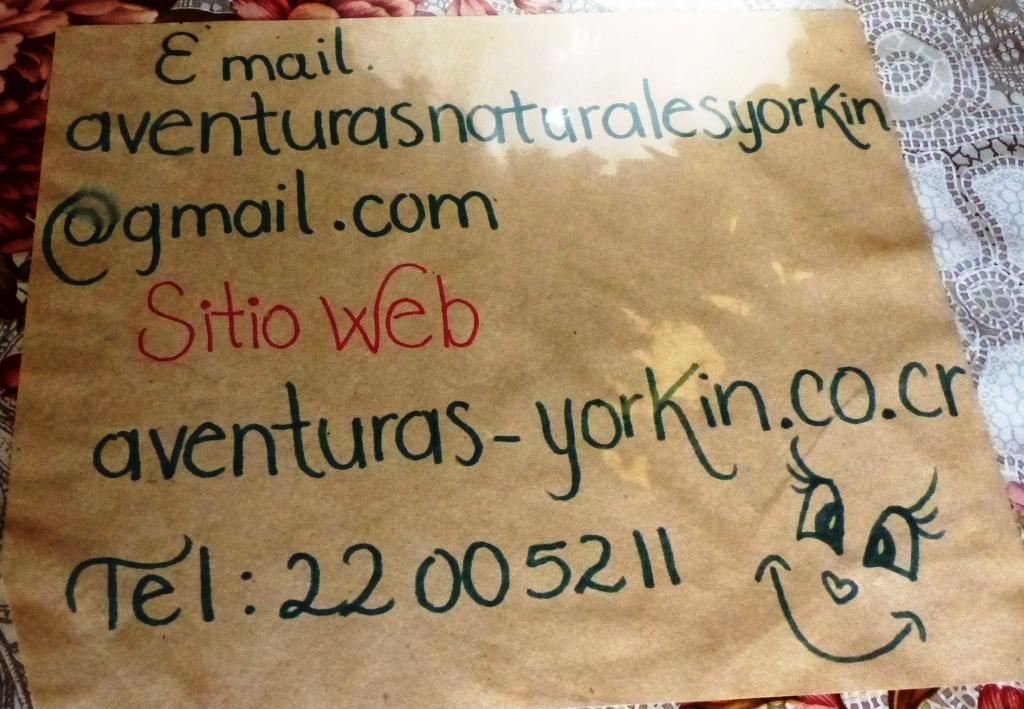 E mail.
aventurasnaturalesyorkin
@gmail.com
Sitio Web
aventuras-yorkin.co.cr
Tel: 22 00 5211